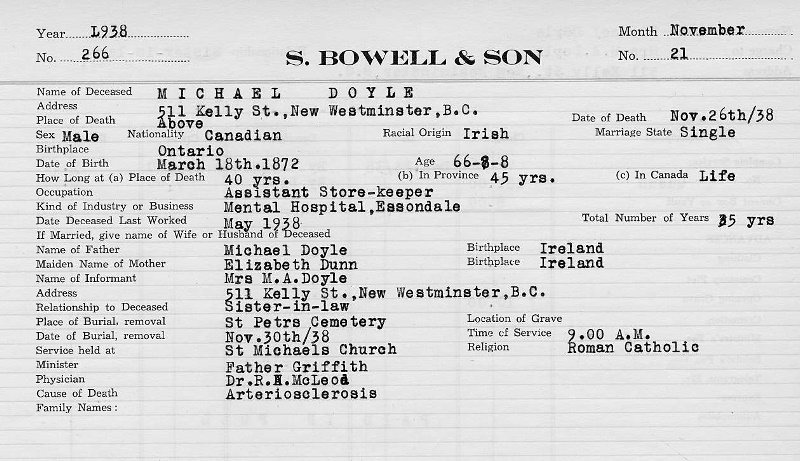 Year 1938 Month November
No. 266 S. BOWELL & SON No. 21
Name of Deceased MICHAEL DOYLE
Address 511 Kelly St.,New Westminster,B.C.
Place of Death Above Date of Death Nov.26th/38
Sex Male Nationality Canadian Racial Origin Irish Marriage State Single
Birthplace Ontario
Date of Birth March 18th.1872 Age 66-8-8
How Long at (a) Place of Death 40 yrs. (b) In Province 45 yrs. (c) In Canada Life
Occupation Assistant Store-keeper
Kind of Industry or Business Mental Hospital,Essondale
Date Deceased Last Worked May 1938 Total Number of Years 35 yrs
If Married, give name of Wife or Husband of Deceased
Name of Father Michael Doyle Birthplace Ireland
Maiden Name of Mother Elizabeth Dunn Birthplace Ireland
Name of Informant Mrs M.A.Doyle
Address 511 Kelly St.,New Westminster,B.C.
Relationship to Deceased Sister-in-law
Place of Burial, removal St Petrs Cemetery Location of Grave
Date of Burial, removal Nov.30th/38 Time of Service 9.00 A.M.
Service held at St Michaels Church Religion Roman Catholic
Minister Father Griffith
Physician Dr.R.N.McLeod
Cause of Death Arteriosclerosis
Family Names :